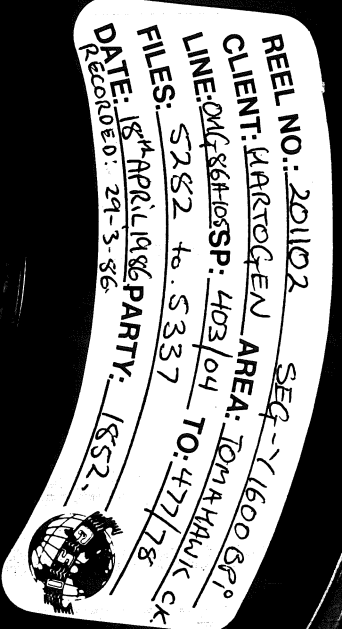 REEL NO.: 201102 SEG-Y 1600 BPI
CLIENT: HARTOGEN AREA: TOMAHAWK CK.
LINE: OMG86A-105 SP: 403/04 TO: 477/78
FILES: 5282 to 5337
DATE: 18th APRIL 1986 PARTY: 1852.
RECORDED: 29-3-86